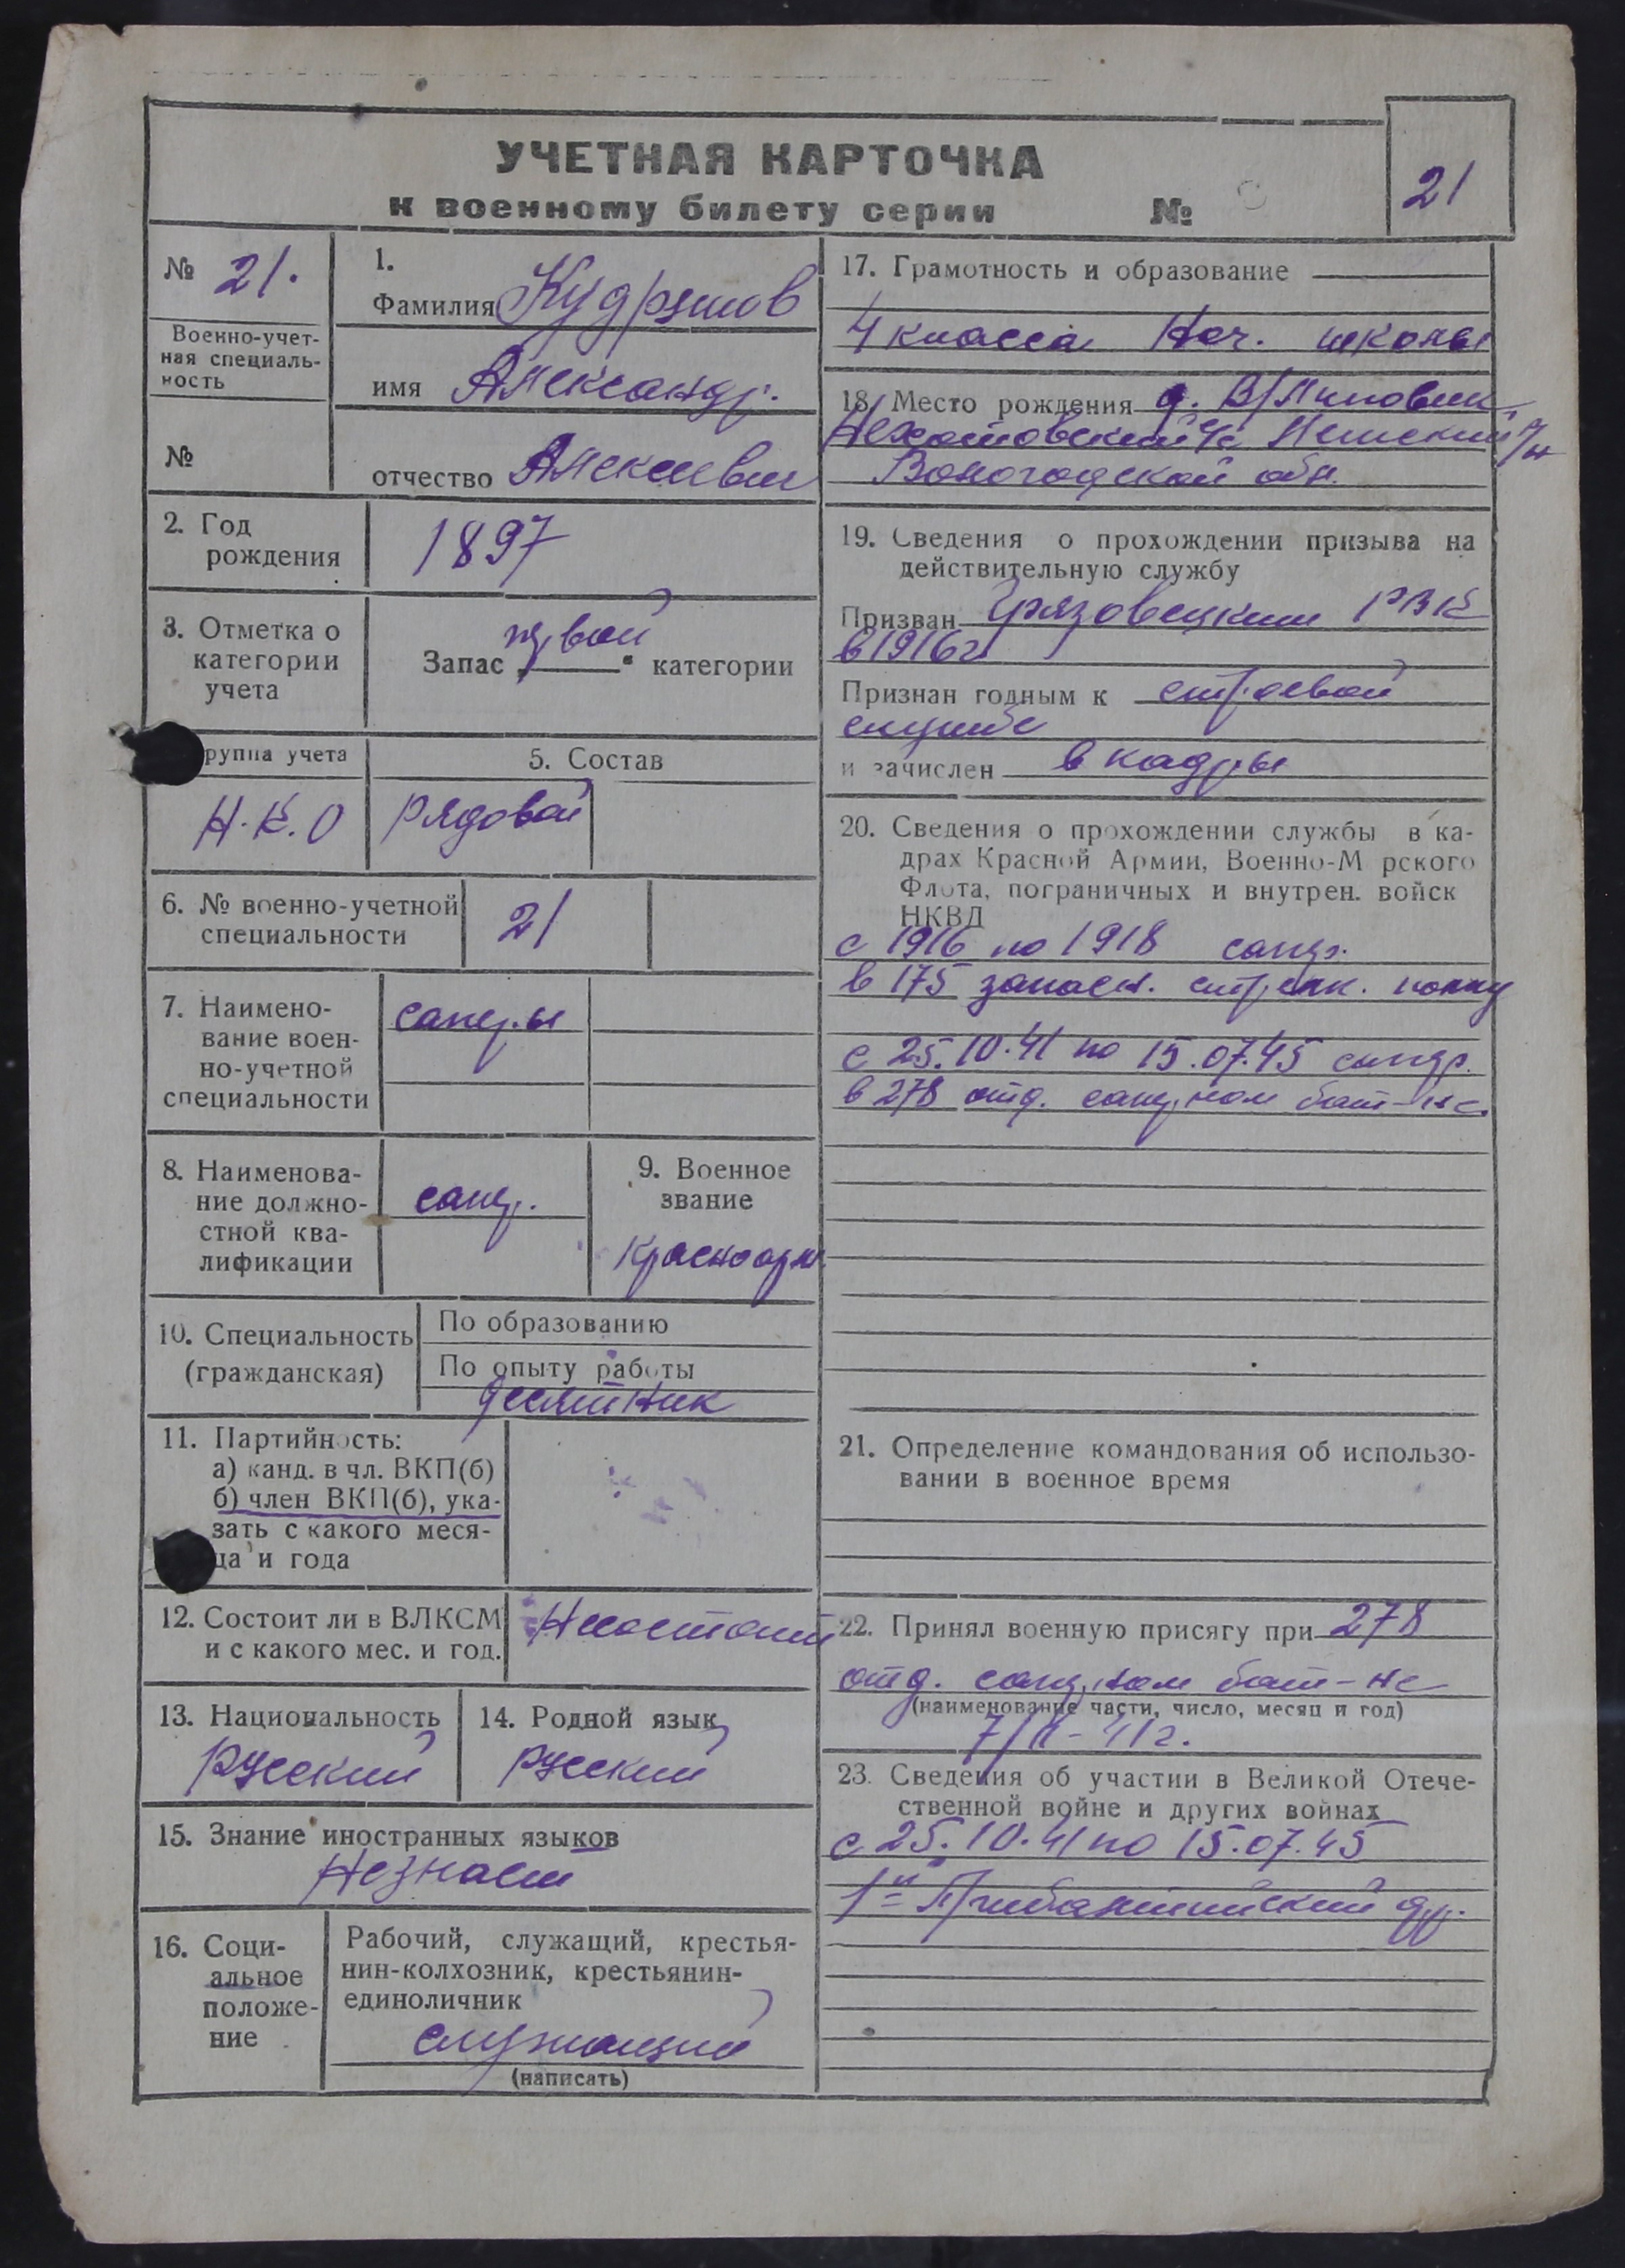 УЧЕТНАЯ КАРТОЧКА
к военному билету серии №
21
№ 21.
Военно-учет-
ная специаль-
ность
№
1.
Фамилия
имя Александр.
отчество
2. Год
рождения
1897
3. Отметка о
категории
учета
Запас категории
руппа учета
Н.К.О
5. Состав
рядовой
6. № военно-учетной
специальности
21
7. Наимено-
вание воен-
но-учетной
специальности
саперы
8. Наименова-
ние должно-
стной ква-
лификации
сапер.
9. Военное
звание
Красноарм.
10. Специальность
(гражданская)
По образованию
По опыту работы
десятник
11. Партийность:
а) канд. в чл. ВКП(б)
б) член ВКП(б), ука-
зать с какого меся-
ца и года
12. Состоит ли в ВЛКСМ
и с какого мес. и год.
Несостоит
13. Национальность
Русский
14. Родной язык
русский
15. Знание иностранных языков
Незнает
16. Соци-
альное
положе-
ние
Рабочий, служащий, крестья-
нин-колхозник, крестьянин-
единоличник
служащий
(написать)
17. Грамотность и образование
4 класса Нач. школы
18. Место рождения д.
Вологодской обл.
19. Сведения о прохождении призыва на
действительную службу
Призван Грязовецким РВК
в 1916г
Признан годным к строевой
службе
и зачислен в кадры
20. Сведения о прохождении службы в ка-
драх Красной Армии, Военно-М рского
Флота, пограничных и внутрен. войск
НКВД
с 1916 по 1918 сапер.
в 175 запасн. стрелк. полку
с 25.10.41 по 15.07.45 сапер.
в 278 отд. саперном бат-не.
21. Определение командования об использо-
вании в военное время
22. Принял военную присягу при 278
отд. саперном бат-не
(наименование части, число, месяц и год)
23. Сведения об участии в Великой Отече-
ственной войне и других войнах
с 25.10.41 по 15.07.45
1й Прибалтийский фр.